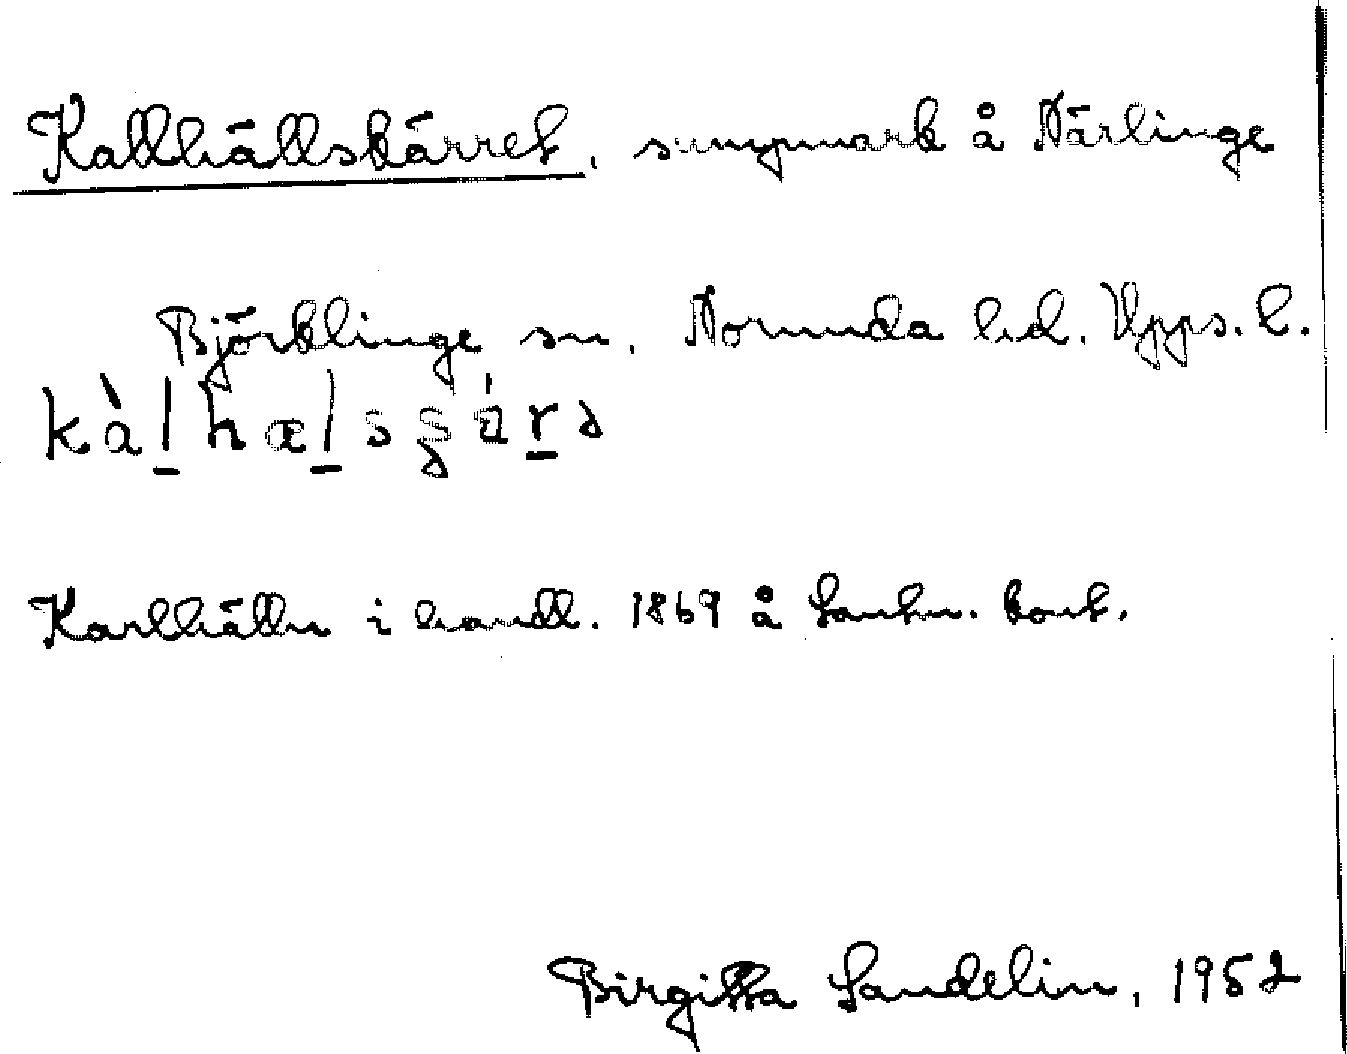 Kallhällskärret, sumpmark å Närlinge
Björklinge sn, Norunda hd. Upps. l.
Karlhälln i handl. 1869 å Lantm. kont.
Birgitta Sandelin, 1952